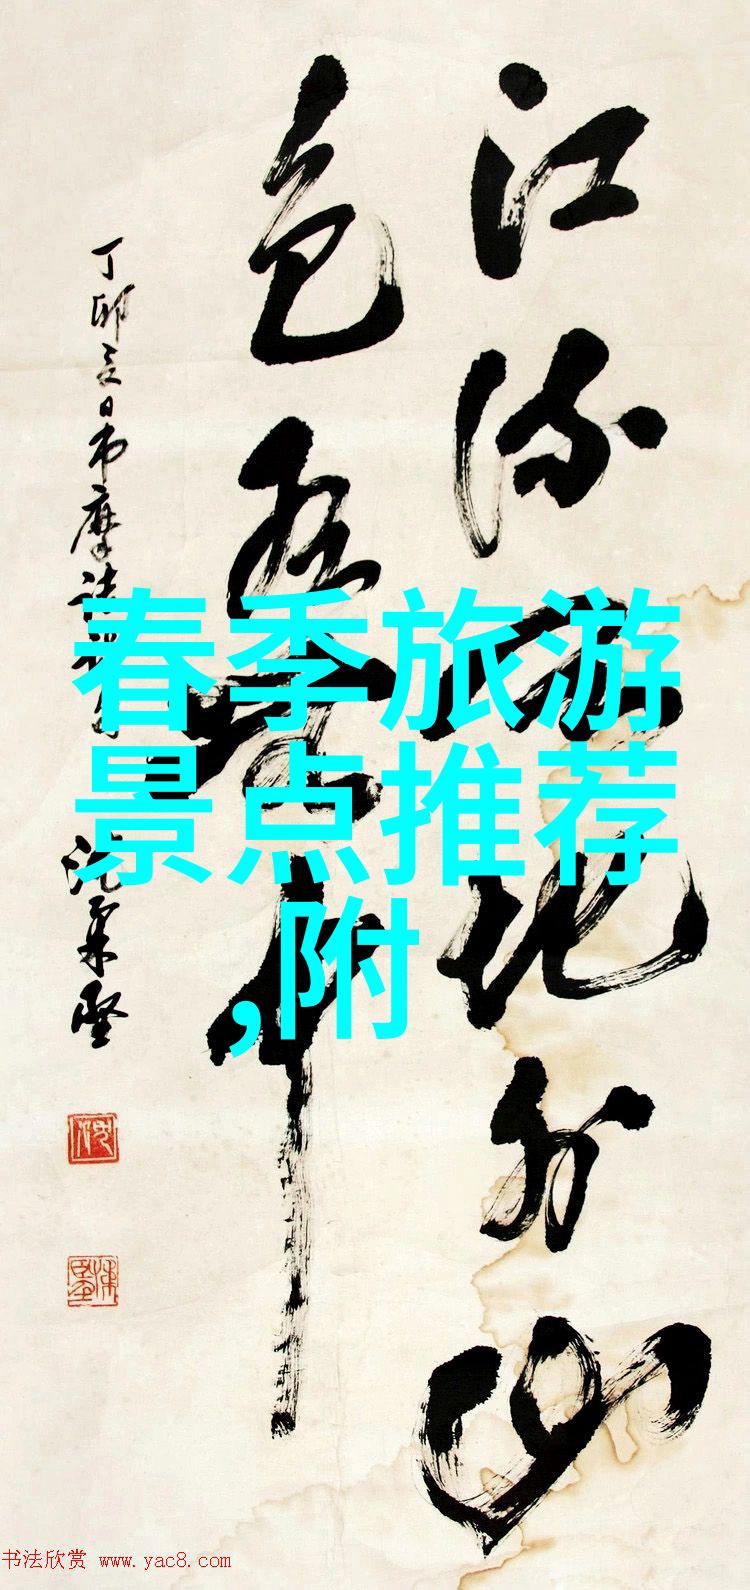 江流天地外山
色有無中
丁卯夏日書摩詰
春季旅游
景点推荐
,附
书法欣赏 www.yac8.com